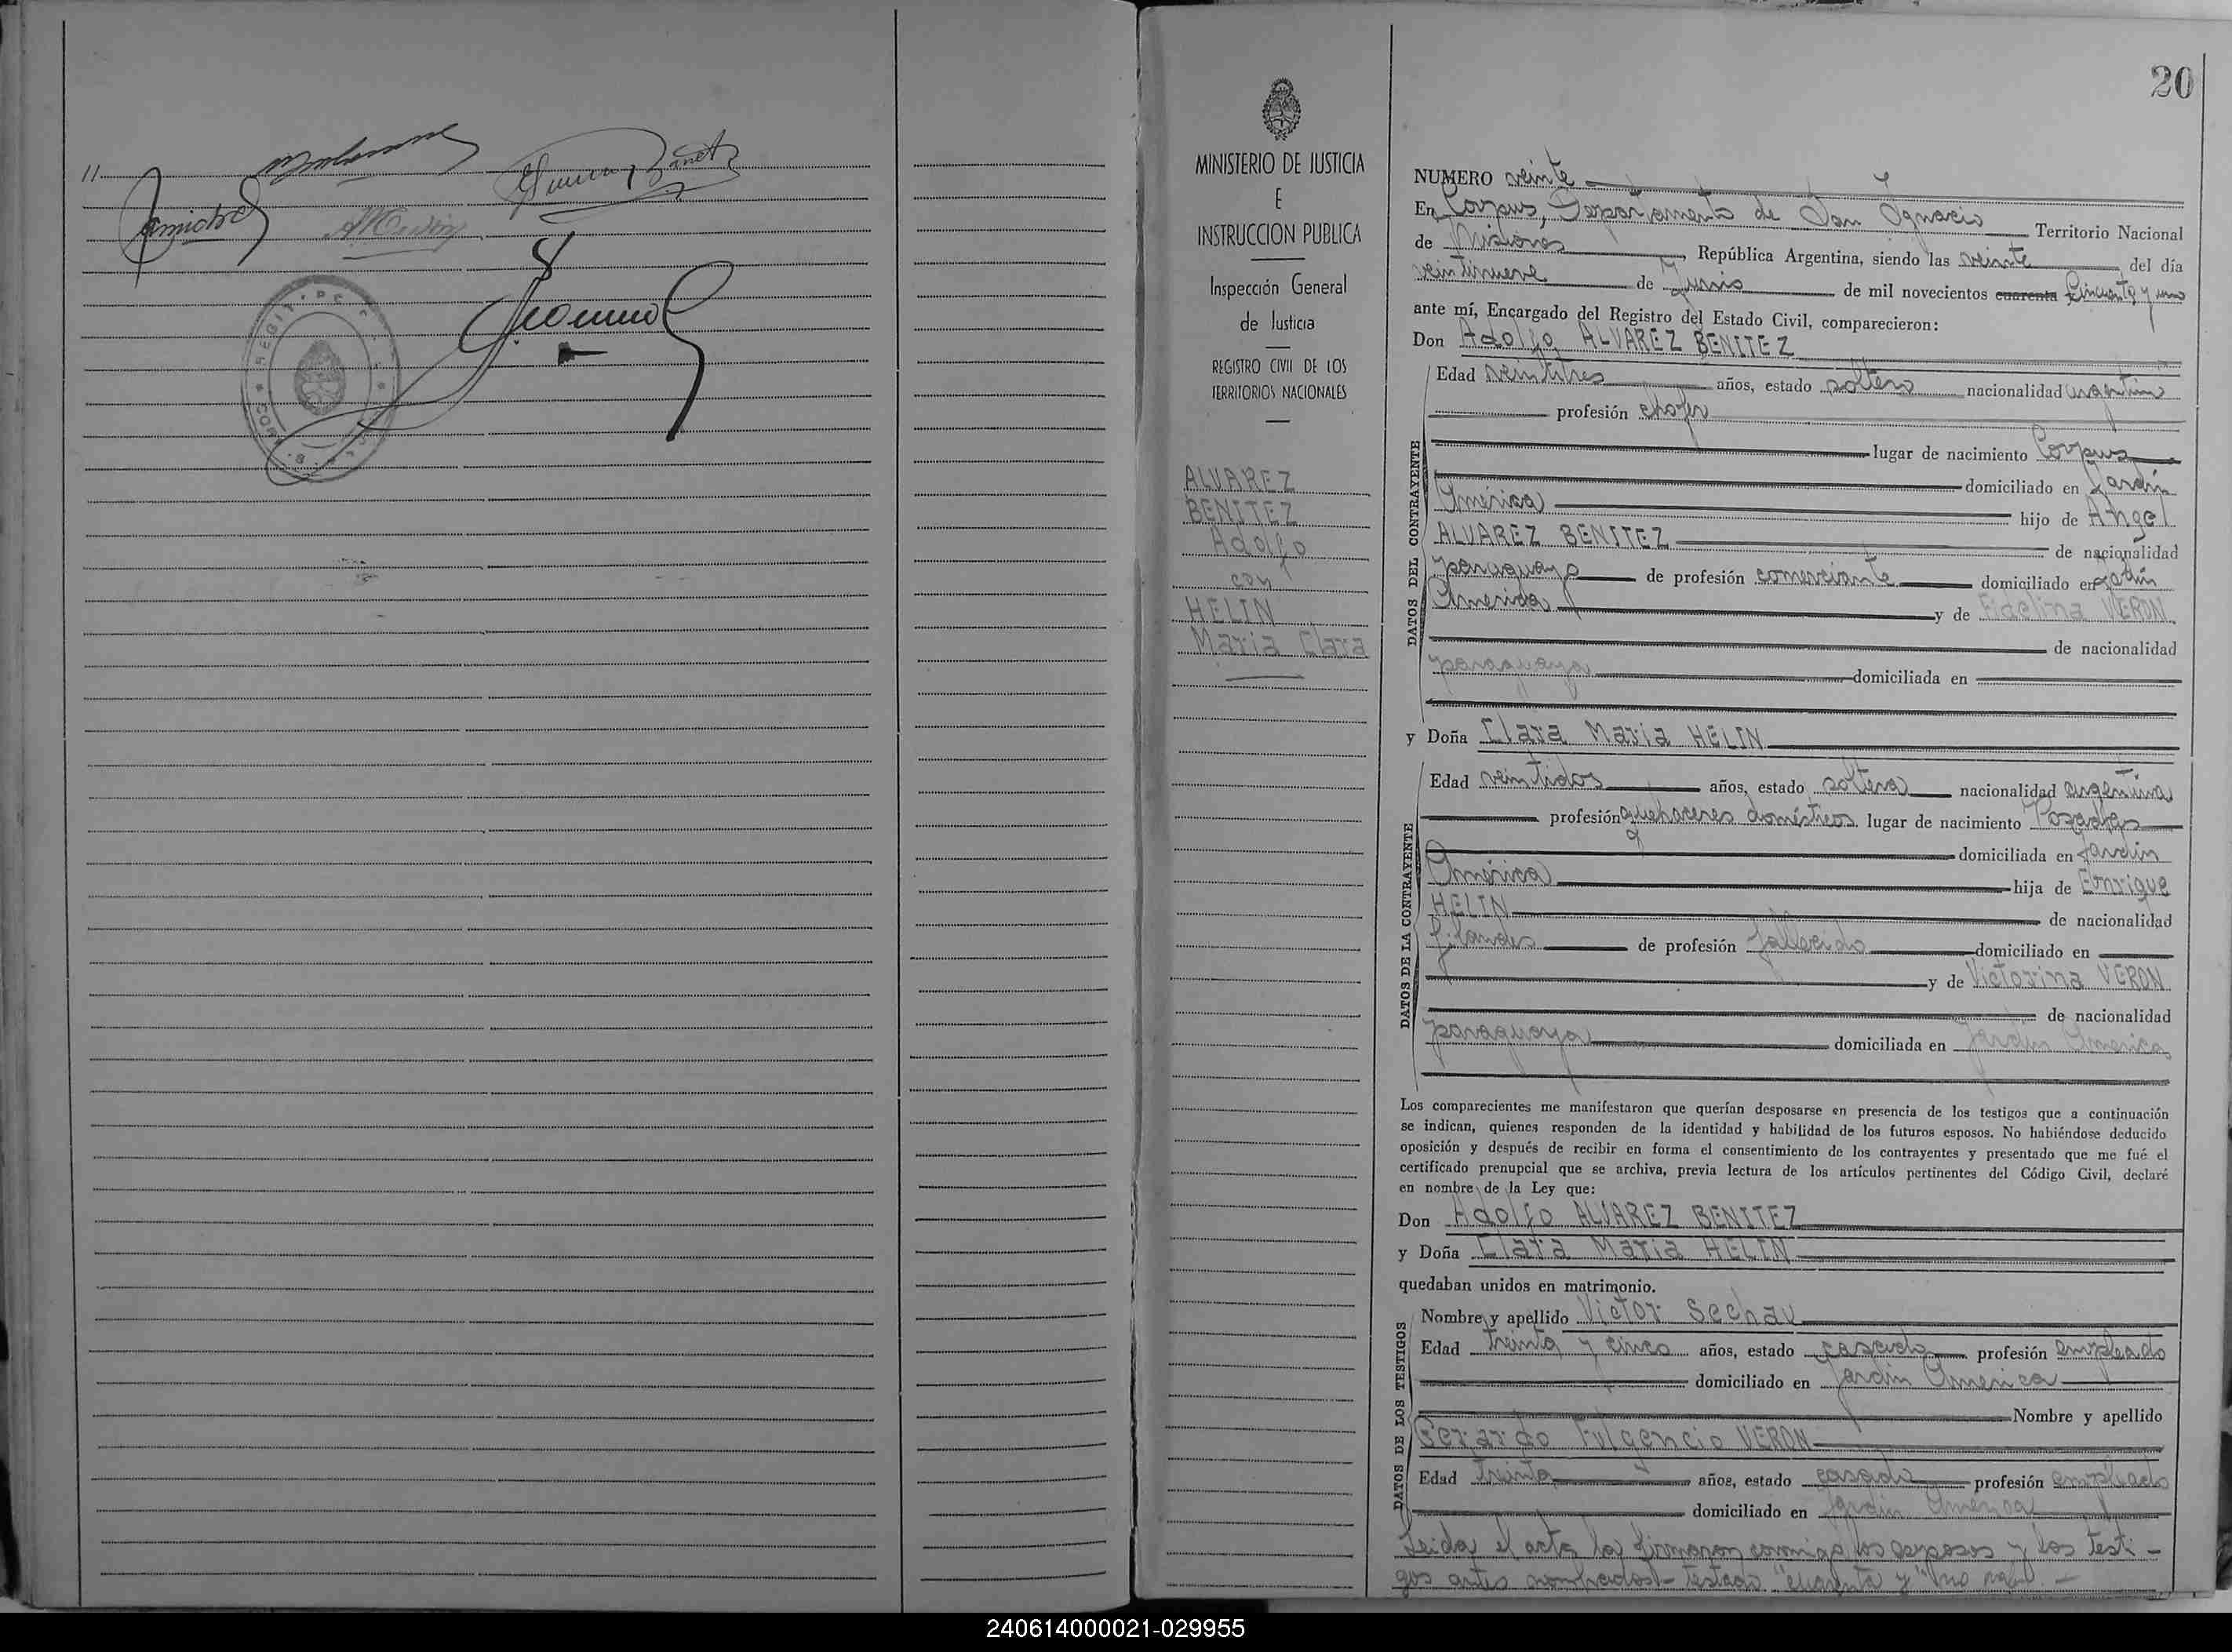 11
20
MINISTERIO DE JUSTICIA
E
INSTRUCCION PUBLICA
Inspección General
de Justicia
REGISTRO CIVIL DE LOS
TERRITORIOS NACIONALES
ALVAREZ
BENITEZ
Adolfo
con
HELIN
Maria Clara
NUMERO veinte
En Corpus, Departamento de San Ignacio Territorio Nacional
de Misiones, República Argentina, siendo las veinte del día
veintinueve de Junio de mil novecientos cuarenta Cincuenta y uno
ante mí, Encargado del Registro del Estado Civil, comparecieron:
Don Adolfo ALVAREZ BENITEZ
DATOS DEL CONTRAYENTE
Edad veintitres años, estado soltero nacionalidad argentino
profesión chofer
lugar de nacimiento Corpus
domiciliado en Jardin
América hijo de Angel
ALVAREZ BENITEZ de nacionalidad
paraguayo de profesión comerciante domiciliado en Jardin
America y de Fidelina VERON
de nacionalidad
paraguaya domiciliada en
y Doña Clara Maria HELIN
DATOS DE LA CONTRAYENTE
Edad veintidos años, estado soltera nacionalidad argentina
profesión quehaceres domésticos lugar de nacimiento Posadas
domiciliada en Jardin
América hija de Enrique
HELIN de nacionalidad
filandes de profesión fallecido domiciliado en
y de Victorina VERON
de nacionalidad
paraguaya domiciliada en Jardin America
Los comparecientes me manifestaron que querían desposarse en presencia de los testigos que a continuación
se indican, quienes responden de la identidad y habilidad de los futuros esposos. No habiéndose deducido
oposición y después de recibir en forma el consentimiento de los contrayentes y presentado que me fué el
certificado prenupcial que se archiva, previa lectura de los artículos pertinentes del Código Civil, declaré
en nombre de la Ley que:
Don Adolfo ALVAREZ BENITEZ
y Doña Clara Maria HELIN
quedaban unidos en matrimonio.
DATOS DE LOS TESTIGOS
Nombre y apellido Victor Sechau
Edad treinta y cinco años, estado casado profesión empleado
domiciliado en Jardin America
Nombre y apellido
Gerardo Fulgencio VERON
Edad treinta años, estado casado profesión empleado
domiciliado en Jardin America
Leida el acta la firmaron conmigo los esposos y los testi-
gos antes nombrados.- Testado "cuarenta y" no vale.-
240614000021-029955